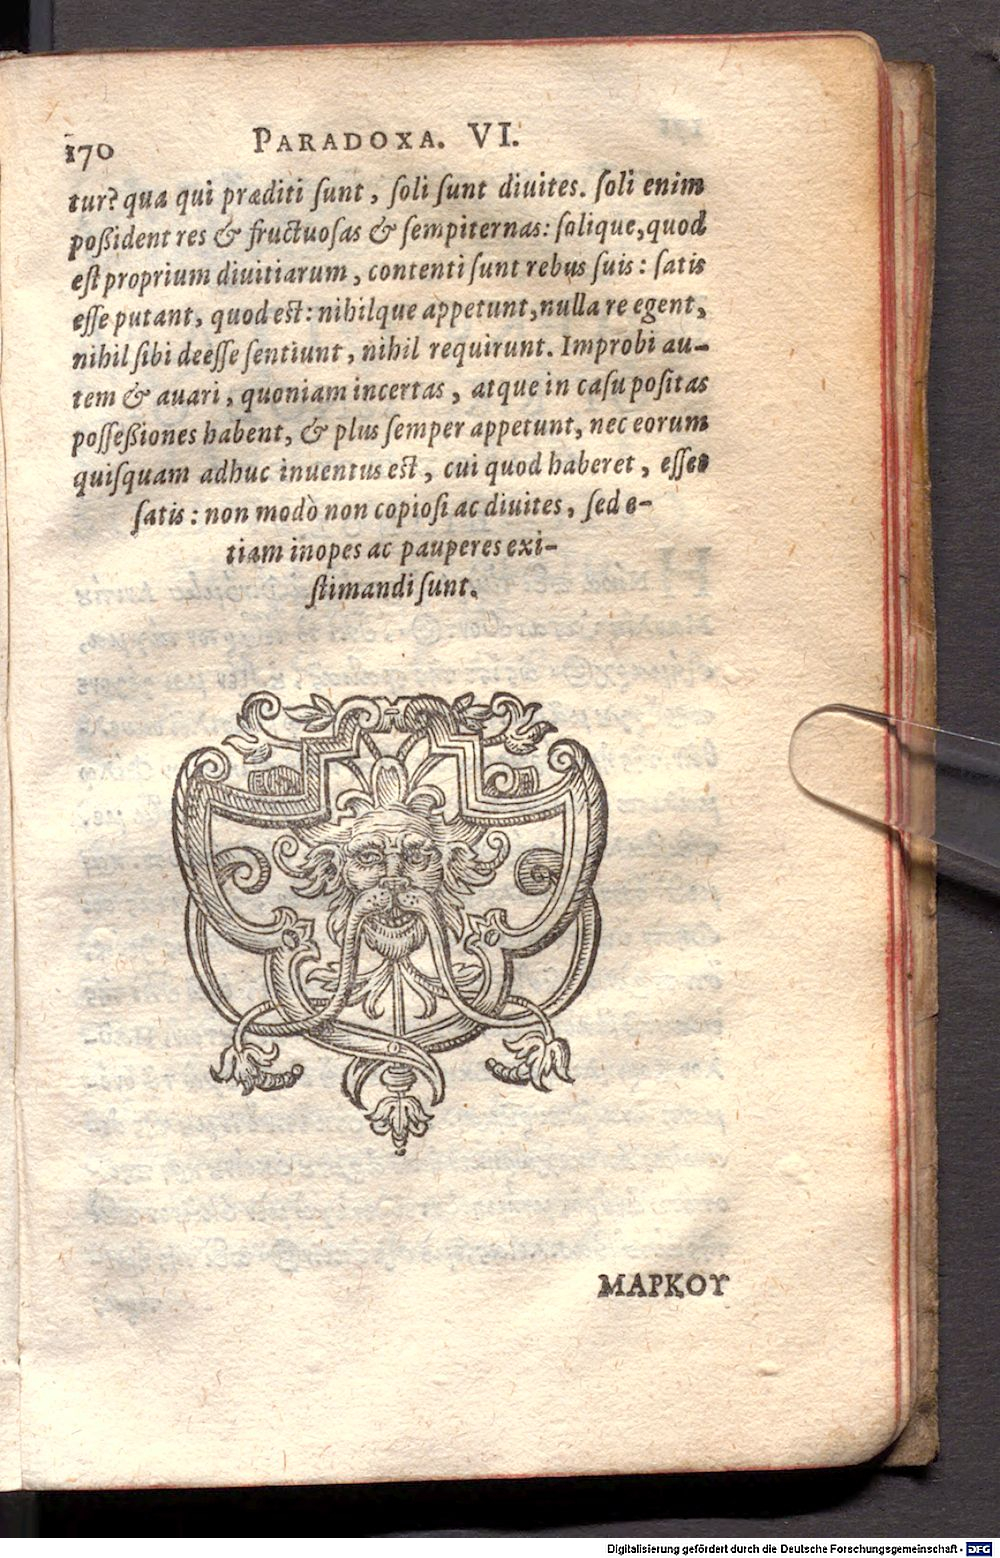 170 PARADOXA. VI.
tur? qua qui præditi ſunt, ſoli ſunt diuites. ſoli enim
poßident res & fructuoſas & ſempiternas: ſolique, quod
eſt proprium diuitiarum, contenti ſunt rebus ſuis: ſatis
eſſe putant, quod est: nihilque appetunt, nulla re egent,
nihil ſibi deeſſe ſentiunt, nihil requirunt. Improbi au-
tem & auari, quoniam incertas, atque in caſu poſitas
poſſeßiones habent, & plus ſemper appetunt, nec eorum
quiſquam adhuc inuentus est, cui quod haberet, eſſet
ſatis: non modò non copioſi ac diuites, ſed e-
tiam inopes ac pauperes exi-
ſtimandi ſunt.
ΜΑΡΚΟΥ
Digitalisierung gefördert durch die Deutsche Forschungsgemeinschaft - DFG